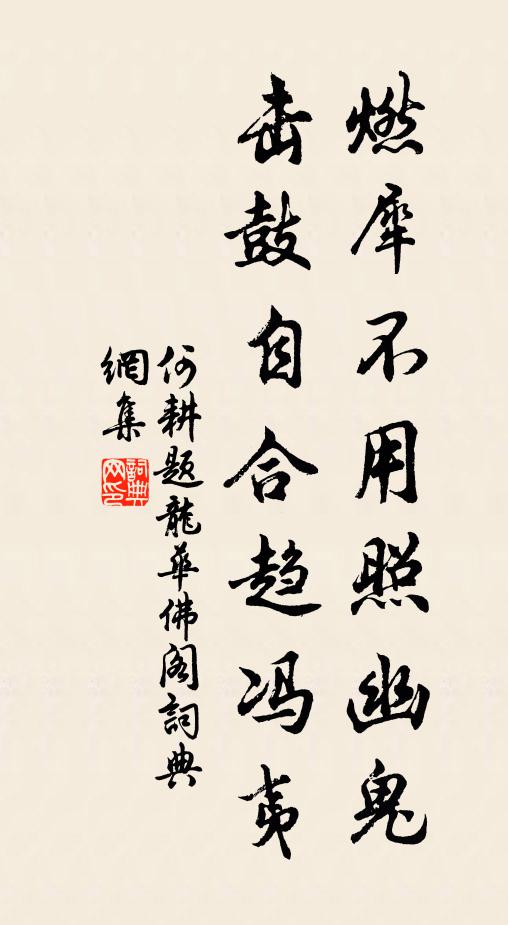 燃犀不用照幽鬼
击鼓自合趋冯夷
何耕题龍华佛阁詞典
網集
詞典网印